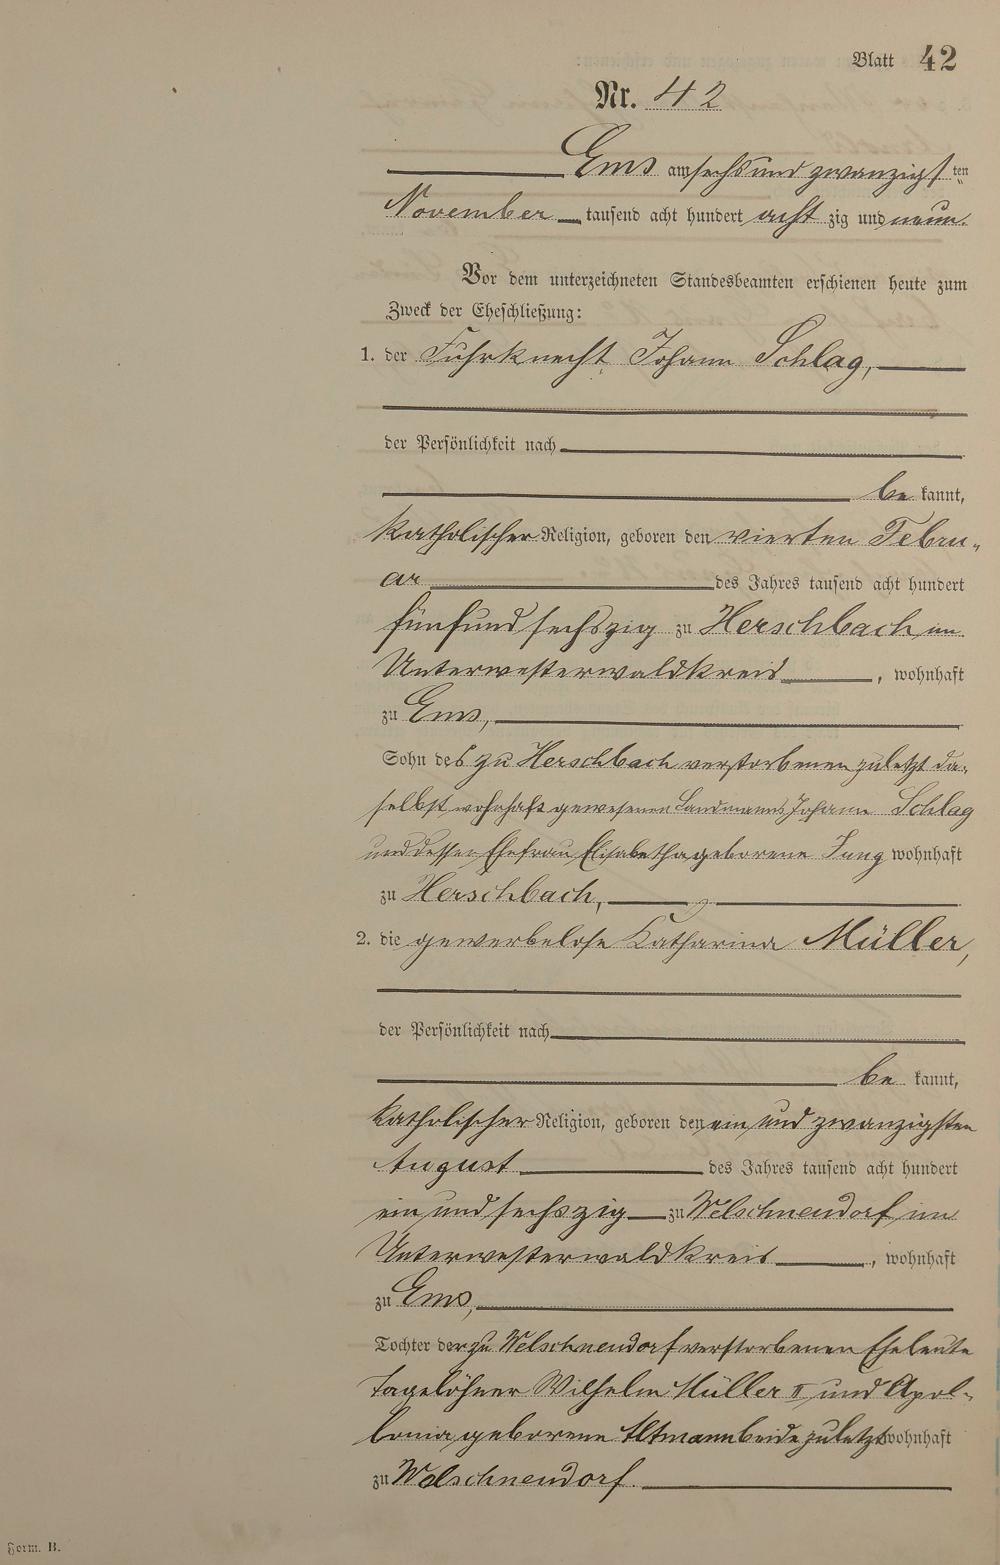 Blatt 42
Nr. 42
Ems am sechs und zwanzigsten
November tausend acht hundert acht zig und neun.
Vor dem unterzeichneten Standesbeamten erschienen heute zum
Zweck der Eheschließung:
1. der Fuhrknecht Johann Schlag,
der Persönlichkeit nach
be kannt,
katholischer Religion, geboren den vierten Febru-
ar des Jahres tausend acht hundert
fünf und sechszig zu Herschbach im
Unterwesterwaldkreis, wohnhaft
zu Ems,
Sohn des zu Herschbach verstorbenen zuletzt da-
selbst wohnhaft gewesenen Landmanns Johann Schlag
und dessen Ehefrau Elisabetha geborene Jung wohnhaft
zu Herschbach,
2. die gewerbelose Katharina Müller,
der Persönlichkeit nach
be kannt,
katholischer Religion, geboren den ein und zwanzigsten
August des Jahres tausend acht hundert
ein und sechszig zu Welschneudorf im
Unterwesterwaldkreis, wohnhaft
zu Ems,
Tochter der zu Welschneudorf verstorbenen Eheleute
Tagelöhner Wilhelm Müller II und Apol-
lonia geborene Altmann beide zuletzt wohnhaft
zu Welschneudorf.
Form. B.